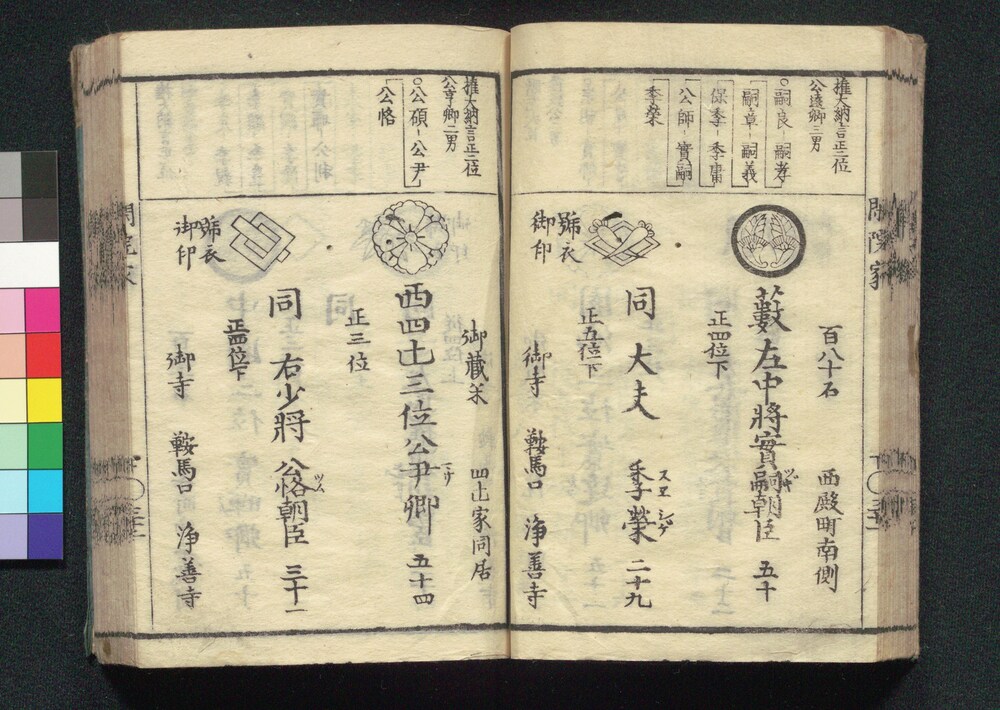 権大納言正二位
公遠卿三男
嗣良 嗣孝
嗣章 嗣義
保季 季庸
公師 實嗣
季榮
百八十石 西殿町南側
藪左中將實嗣朝臣 五十
ツギ
正四位下
同 大夫 季榮 二十九
スヱ シゲ
正五位下
號衣
御印
御寺 鞍馬口 浄善寺
権大納言正二位
公亨卿二男
公碩 公尹
公恪
御蔵米 四辻家同居
西四辻三位公尹卿 五十四
正三位
同 右少將 公恪朝臣 三十一
ツム
正四位下
號衣
御印
御寺 鞍馬口 浄善寺
閑院家
閑院家